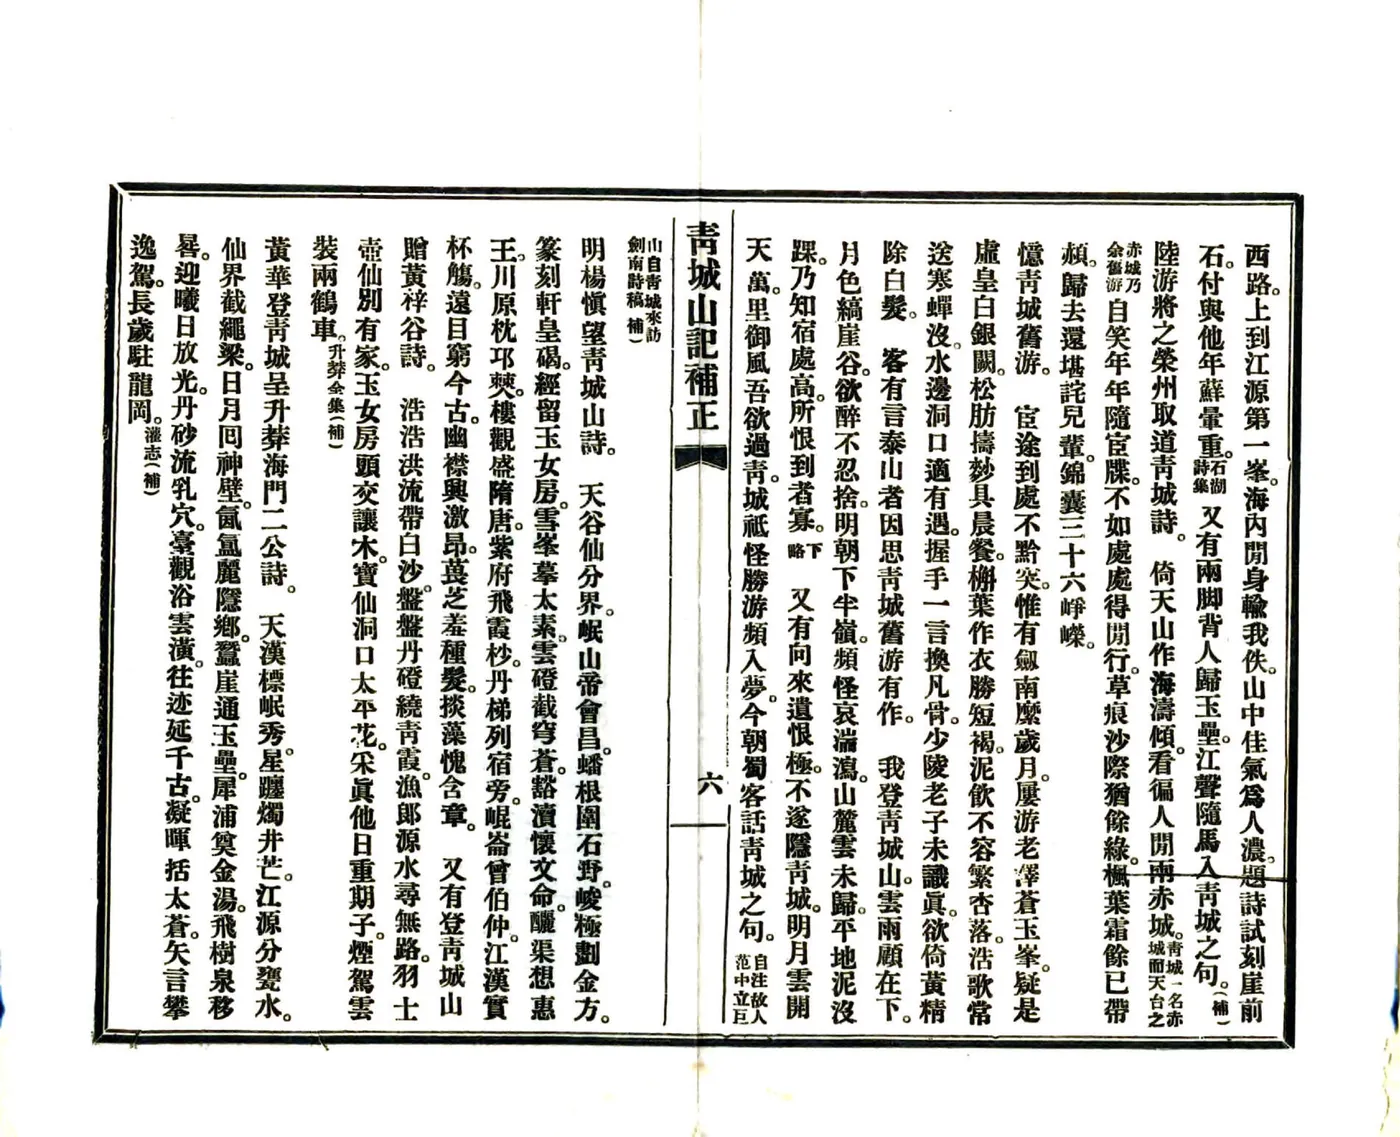 西路。上到江源第一峯。海內閒身輸我佚。山中佳氣爲人濃。題詩試刻崖前
石。付與他年蘚暈重。石湖詩集 又有兩脚背人歸玉壘。江聲隨馬入靑城之句。(補)
陸游將之榮州取道靑城詩。 倚天山作海濤傾。看徧人閒兩赤城。靑城一名赤城而天台之
赤城乃余舊游 自笑年年隨宦牒。不如處處得閒行。草痕沙際猶餘綠。楓葉霜餘已帶
赬。歸去還堪詫兒輩。錦囊三十六崢嶸。
憶靑城舊游。 宦途到處不黔突。惟有劔南縻歲月。屢游老澤蒼玉峯。疑是
虛皇白銀闕。松肪擣麨具晨餐。槲葉作衣勝短褐。泥飮不容繁杏落。浩歌常
送寒蟬沒。水邊洞口適有遇。握手一言換凡骨。少陵老子未識眞。欲倚黃精
除白髮。 客有言泰山者因思靑城舊游有作。 我登靑城山。雲雨顧在下。
月色縞崖谷。欲醉不忍捨。明朝下半嶺。頻怪哀湍瀉。山麓雲未歸。平地泥沒
踝。乃知宿處高。所恨到者寡。下略 又有向來遺恨極。不遂隱靑城。明月雲開
天。萬里御風吾欲過靑。城祇怪勝游頻入夢。今朝蜀客話靑城之句。自注故人范中立巨
靑城山記補正
六
山自靑城來訪劍南詩稿 補)
明楊愼望靑城山詩。 天谷仙分界。岷山帝會昌。蟠根圍石野。峻極劃金方。
篆刻軒皇碣。經留玉女房。雪峯摹太素。雲磴截穹蒼。豁瀆懷文命。釃渠想惠
王。川原枕邛僰。樓觀盛隋唐。紫府飛霞杪。丹梯列宿旁。崐崙曾伯仲。江漢實
杯觴。遠目窮今古。幽襟興激昂。茛芝羞種髮。掞藻愧含章。 又有登靑城山
贈黃梓谷詩。 浩浩洪流帶白沙。盤盤丹磴繞靑霞。漁郞源水尋無路。羽士
壺仙別有家。玉女房頭交讓木。寶仙洞口太平花。采眞他日重期子。煙駕雲
裝兩鶴車。升菴全集(補)
黃華登靑城呈升菴海門二公詩。 天漢標岷秀。星躔燭井芒。江源分甕水。
仙界截繩梁。日月囘神壁。氤氳麗隱鄕。蠶崖通玉壘。犀浦奠金湯。飛樹泉移
晷。迎曦日放光。丹砂流乳穴。臺觀浴雲潢。往迹延千古。凝暉括太蒼。矢言攀
逸駕。長歲駐龍岡。灌志(補)